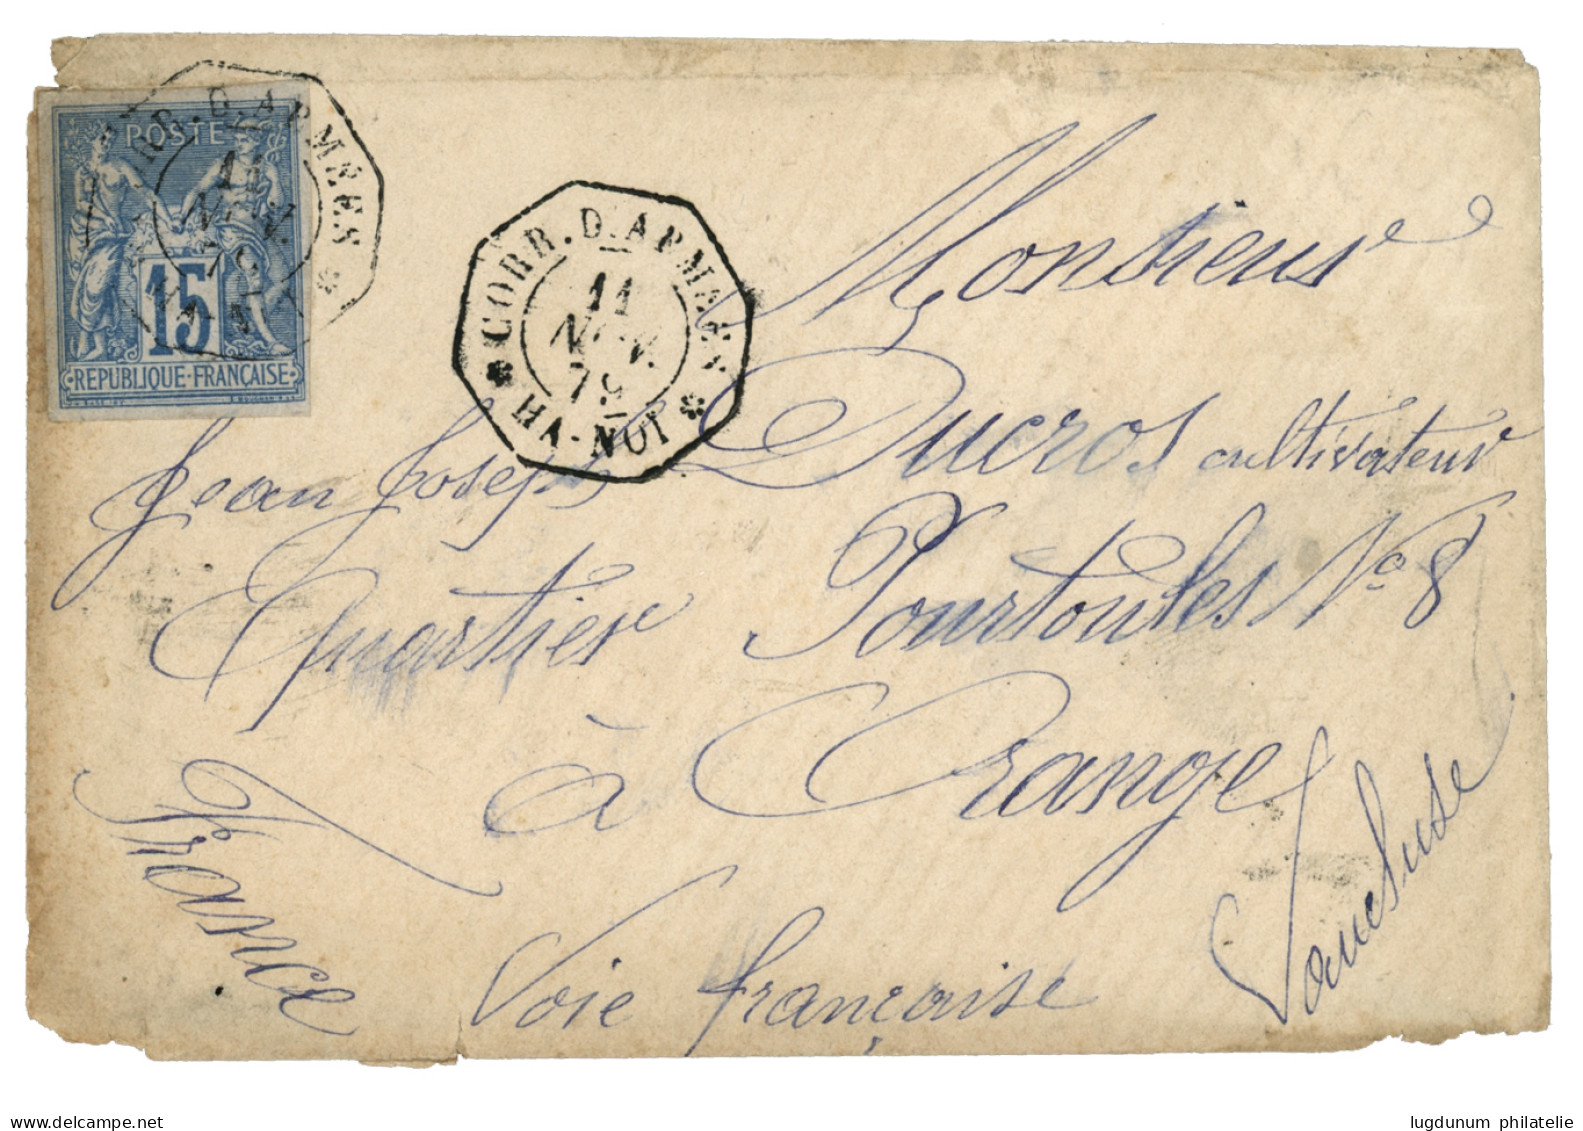 POSTE
15
REPUBLIQUE FRANÇAISE
RR. D. ARMEES
11
NOV.
79
HA-NOI
CORR. D. ARMEES
11
NOV.
79
HA-NOI
Monsieur
Jean Joseph Ducros cultivateur
Quartier Pourtoules N° 8
à Orange
Vaucluse
France
Voie française
www.delcampe.net
lugdunum philatelie